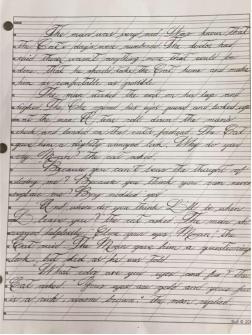 The man was very sad. He knew that
the Cat's days were numbered. The doctor had
said there wasn't anything more that could be
done, that he should take the Cat home and make
him as comfortable as possible.
The man stroked the cat on his lap and
sighed. The Cat opened his eyes, purred and looked up
at the man. A tear rolled down the man's
cheek and landed on the Cat's forehead. The Cat
gave him a slightly annoyed look. Why do you
cry, Man? the cat asked.
Because you can't bear the thought of
losing me? Because you think you can never
replace me? The man nodded yes.
And where do you think I'll be when
I leave you? the cat asked. The man
shrugged helplessly. Close your eyes, Man, the
Cat said. The Man gave him a questioning
look, but did as he was told.
What color are my eyes and fur? the
Cat asked. Your eyes are gold and your fur
is a rich, warm brown, the man replied.